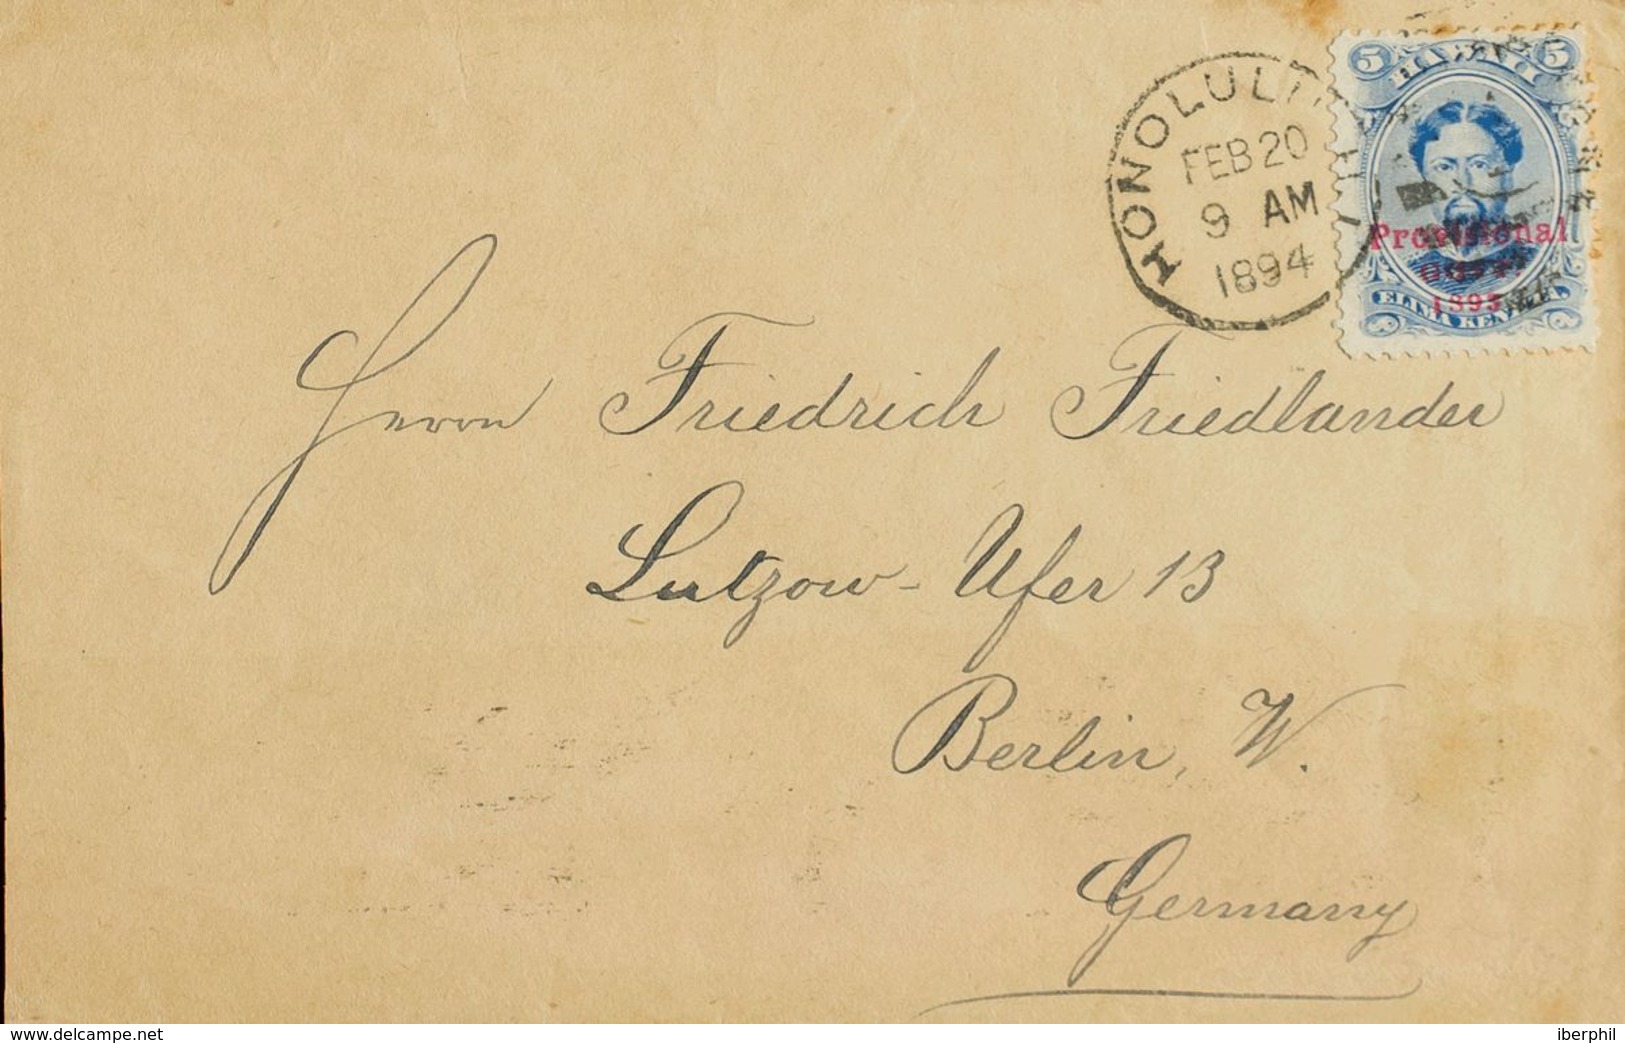 HONOLULU H.I.
FEB 20
9 AM
1894
5 HAWAII 5
Provisional
GOVT.
1893
ELIMA KENETA
Herrn Friedrich Friedlander
Lutzow-Ufer 13
Berlin, W.
Germany
www.delcampe.net
iberphil